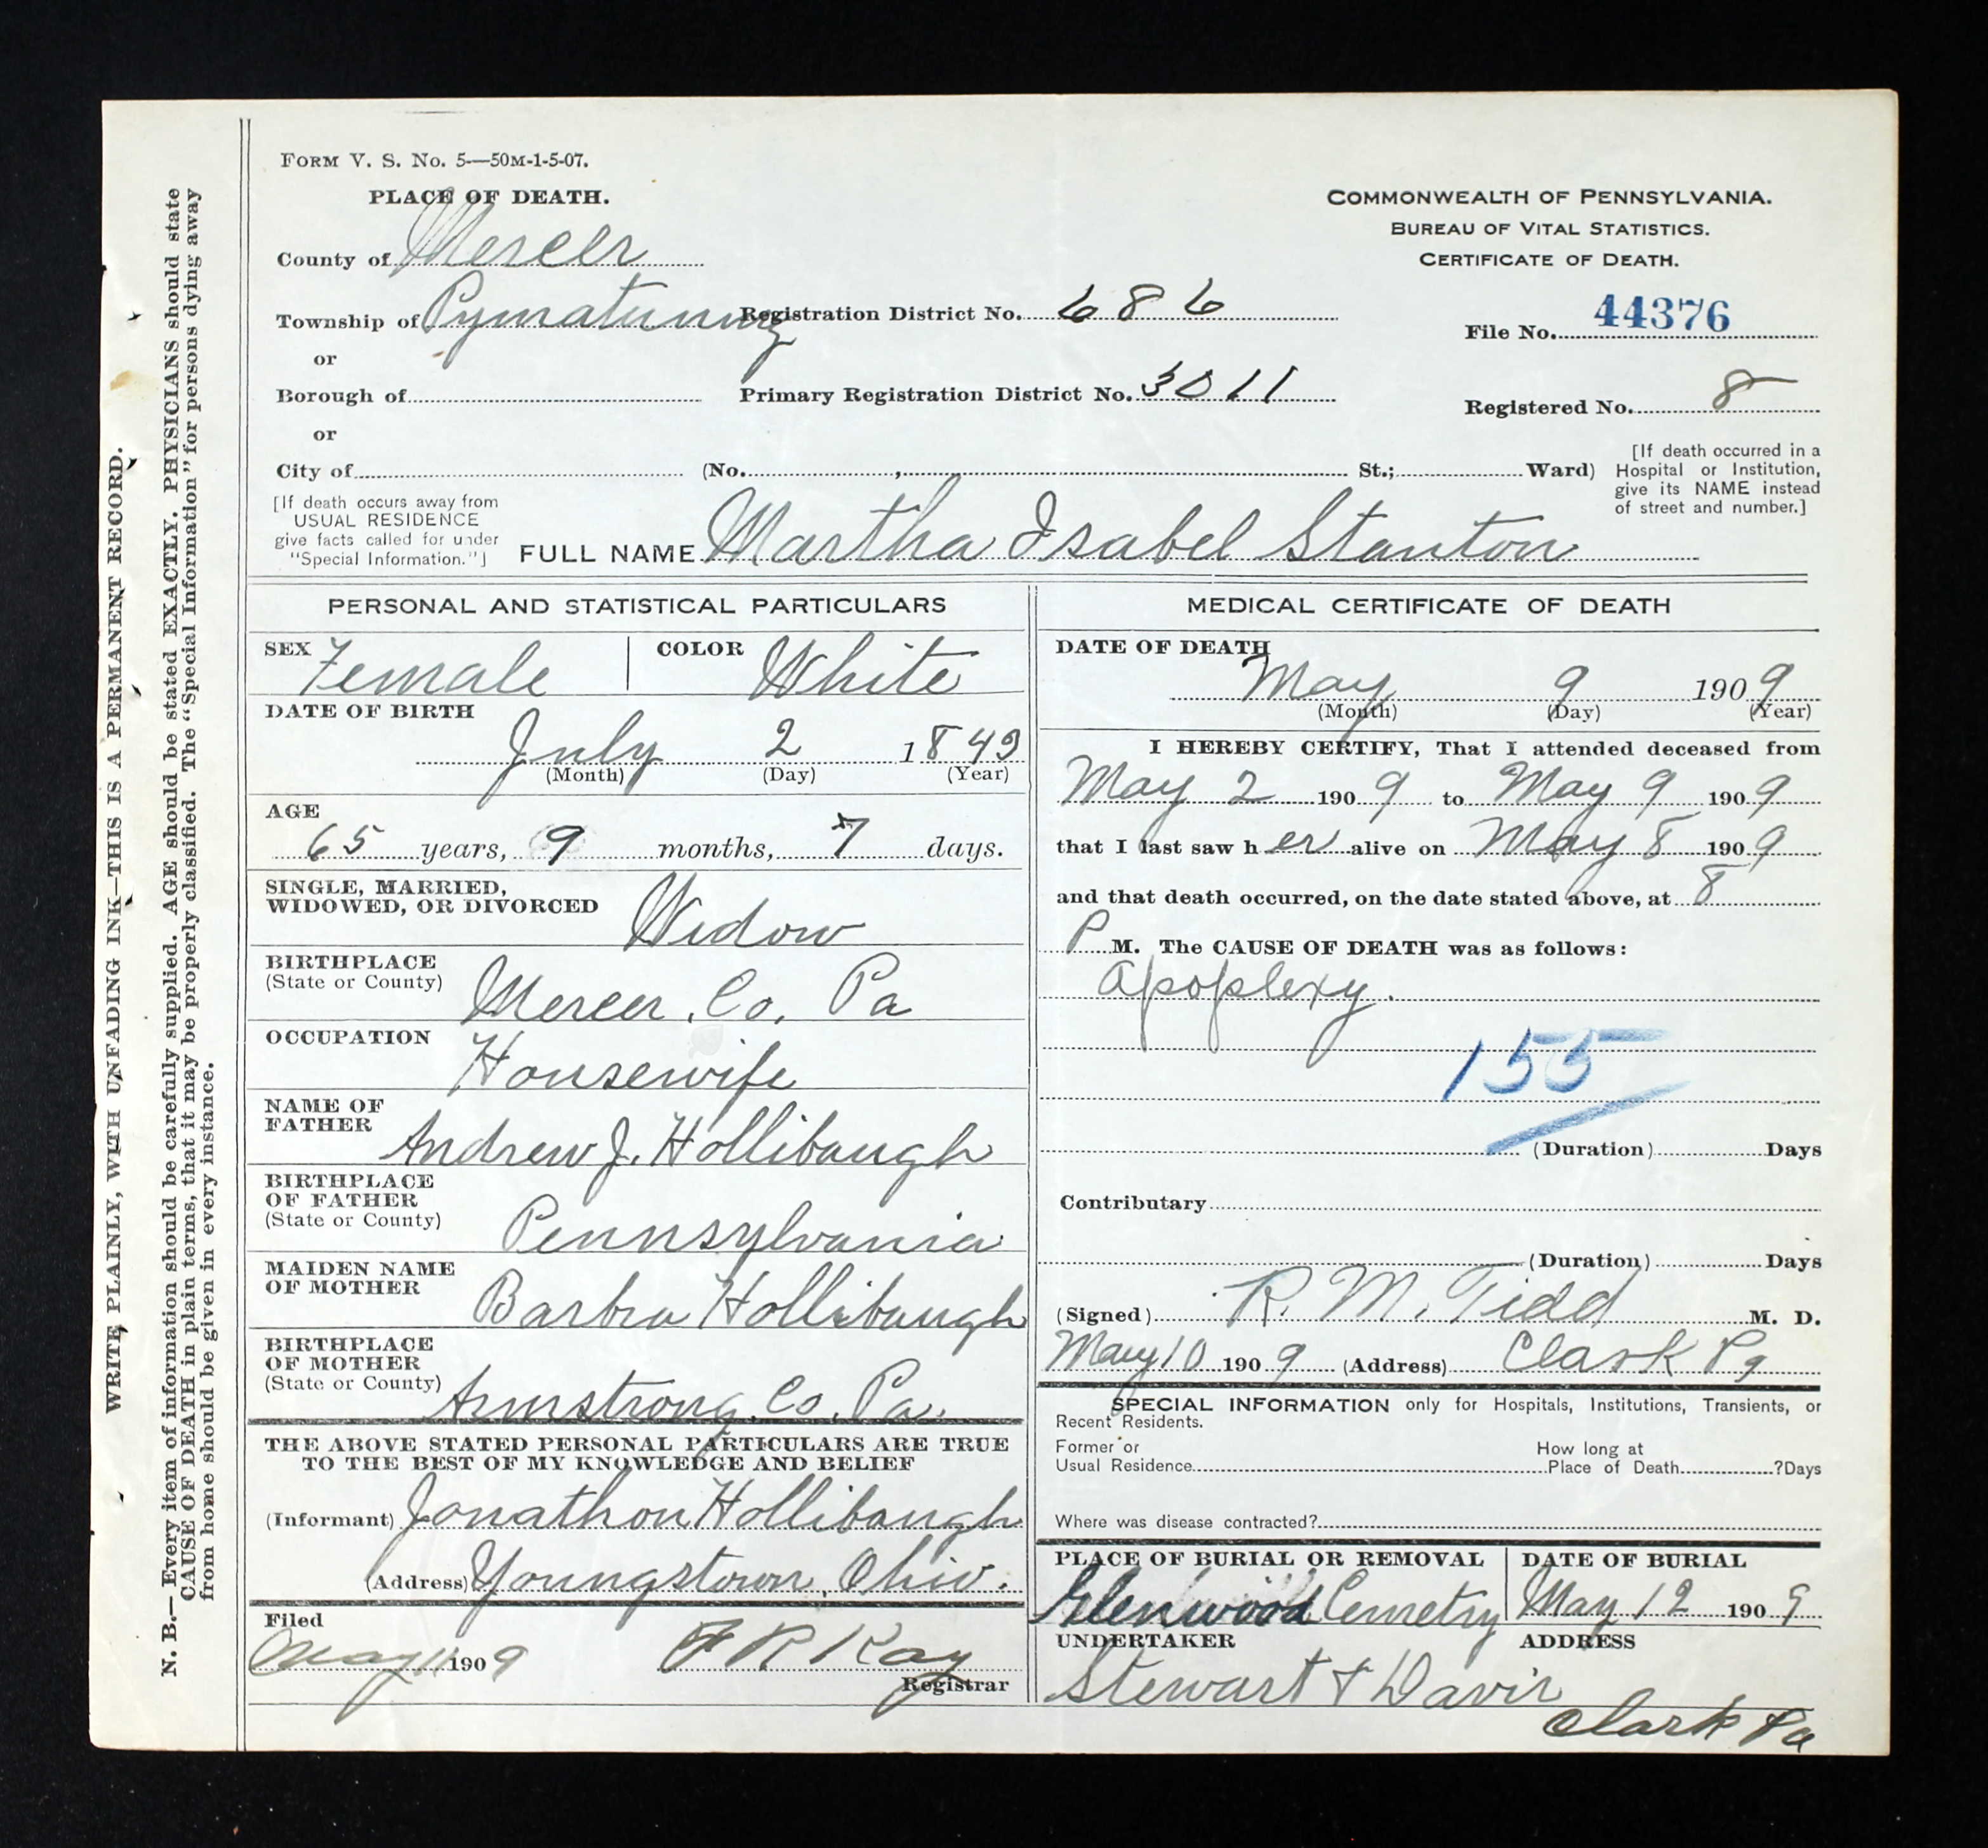 FORM V. S. No. 5—50M-1-5-07.
PLACE OF DEATH.
COMMONWEALTH OF PENNSYLVANIA.
BUREAU OF VITAL STATISTICS.
CERTIFICATE OF DEATH.
County of Mercer
Township of Pymatuning Registration District No. 686
File No. 44376
or
Borough of Primary Registration District No. 3011
Registered No. 8
or
City of (No. , St.; Ward)
[If death occurred in a
Hospital or Institution,
give its NAME instead
of street and number.]
[If death occurs away from
USUAL RESIDENCE
give facts called for under
"Special Information."]
FULL NAME Martha Isabel Stanton
PERSONAL AND STATISTICAL PARTICULARS
SEX Female COLOR White
DATE OF BIRTH
July 2 1843
(Month) (Day) (Year)
AGE
65 years, 9 months, 7 days.
SINGLE, MARRIED,
WIDOWED, OR DIVORCED Widow
BIRTHPLACE
(State or County) Mercer. Co. Pa
OCCUPATION
Housewife
NAME OF
FATHER Andrew J. Hollibaugh
BIRTHPLACE
OF FATHER
(State or County) Pennsylvania
MAIDEN NAME
OF MOTHER Barbra Hollibaugh
BIRTHPLACE
OF MOTHER
(State or County) Armstrong. Co. Pa.
THE ABOVE STATED PERSONAL PARTICULARS ARE TRUE
TO THE BEST OF MY KNOWLEDGE AND BELIEF
(Informant) Jonathon Hollibaugh
(Address) Youngstown, Ohio.
Filed
May 11 1909 F R Kay
Registrar
MEDICAL CERTIFICATE OF DEATH
DATE OF DEATH
May 9 1909
(Month) (Day) (Year)
I HEREBY CERTIFY, That I attended deceased from
May 2 1909 to May 9 1909
that I last saw her alive on May 8 1909
and that death occurred, on the date stated above, at 8
P M. The CAUSE OF DEATH was as follows:
Apoplexy.
155
(Duration) Days
Contributary
(Duration) Days
(Signed) R. M. Tidd M. D.
May 10 1909 (Address) Clark Pa
SPECIAL INFORMATION only for Hospitals, Institutions, Transients, or
Recent Residents.
Former or
Usual Residence
How long at
Place of Death ?Days
Where was disease contracted?
PLACE OF BURIAL OR REMOVAL DATE OF BURIAL
Glenwood Cemetry May 12 1909
UNDERTAKER ADDRESS
Stewart & Davis
Clark Pa
WRITE PLAINLY, WITH UNFADING INK—THIS IS A PERMANENT RECORD.
N. B.—Every item of information should be carefully supplied. AGE should be stated EXACTLY. PHYSICIANS should state
CAUSE OF DEATH in plain terms, that it may be properly classified. The "Special Information" for persons dying away
from home should be given in every instance.